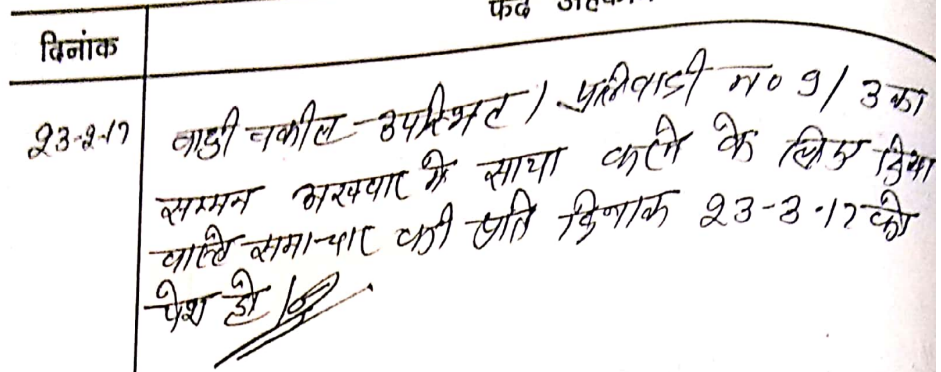 फर्द अहका
दिनांक
23-2-17 वादी वकील उपस्थित। प्रतिवादी न० 9/3 का
सम्मन अखवार मे साया करने के लिए दिया
वास्ते समाचार की प्रति दिनांक 23-3-17 को
पेश हो।